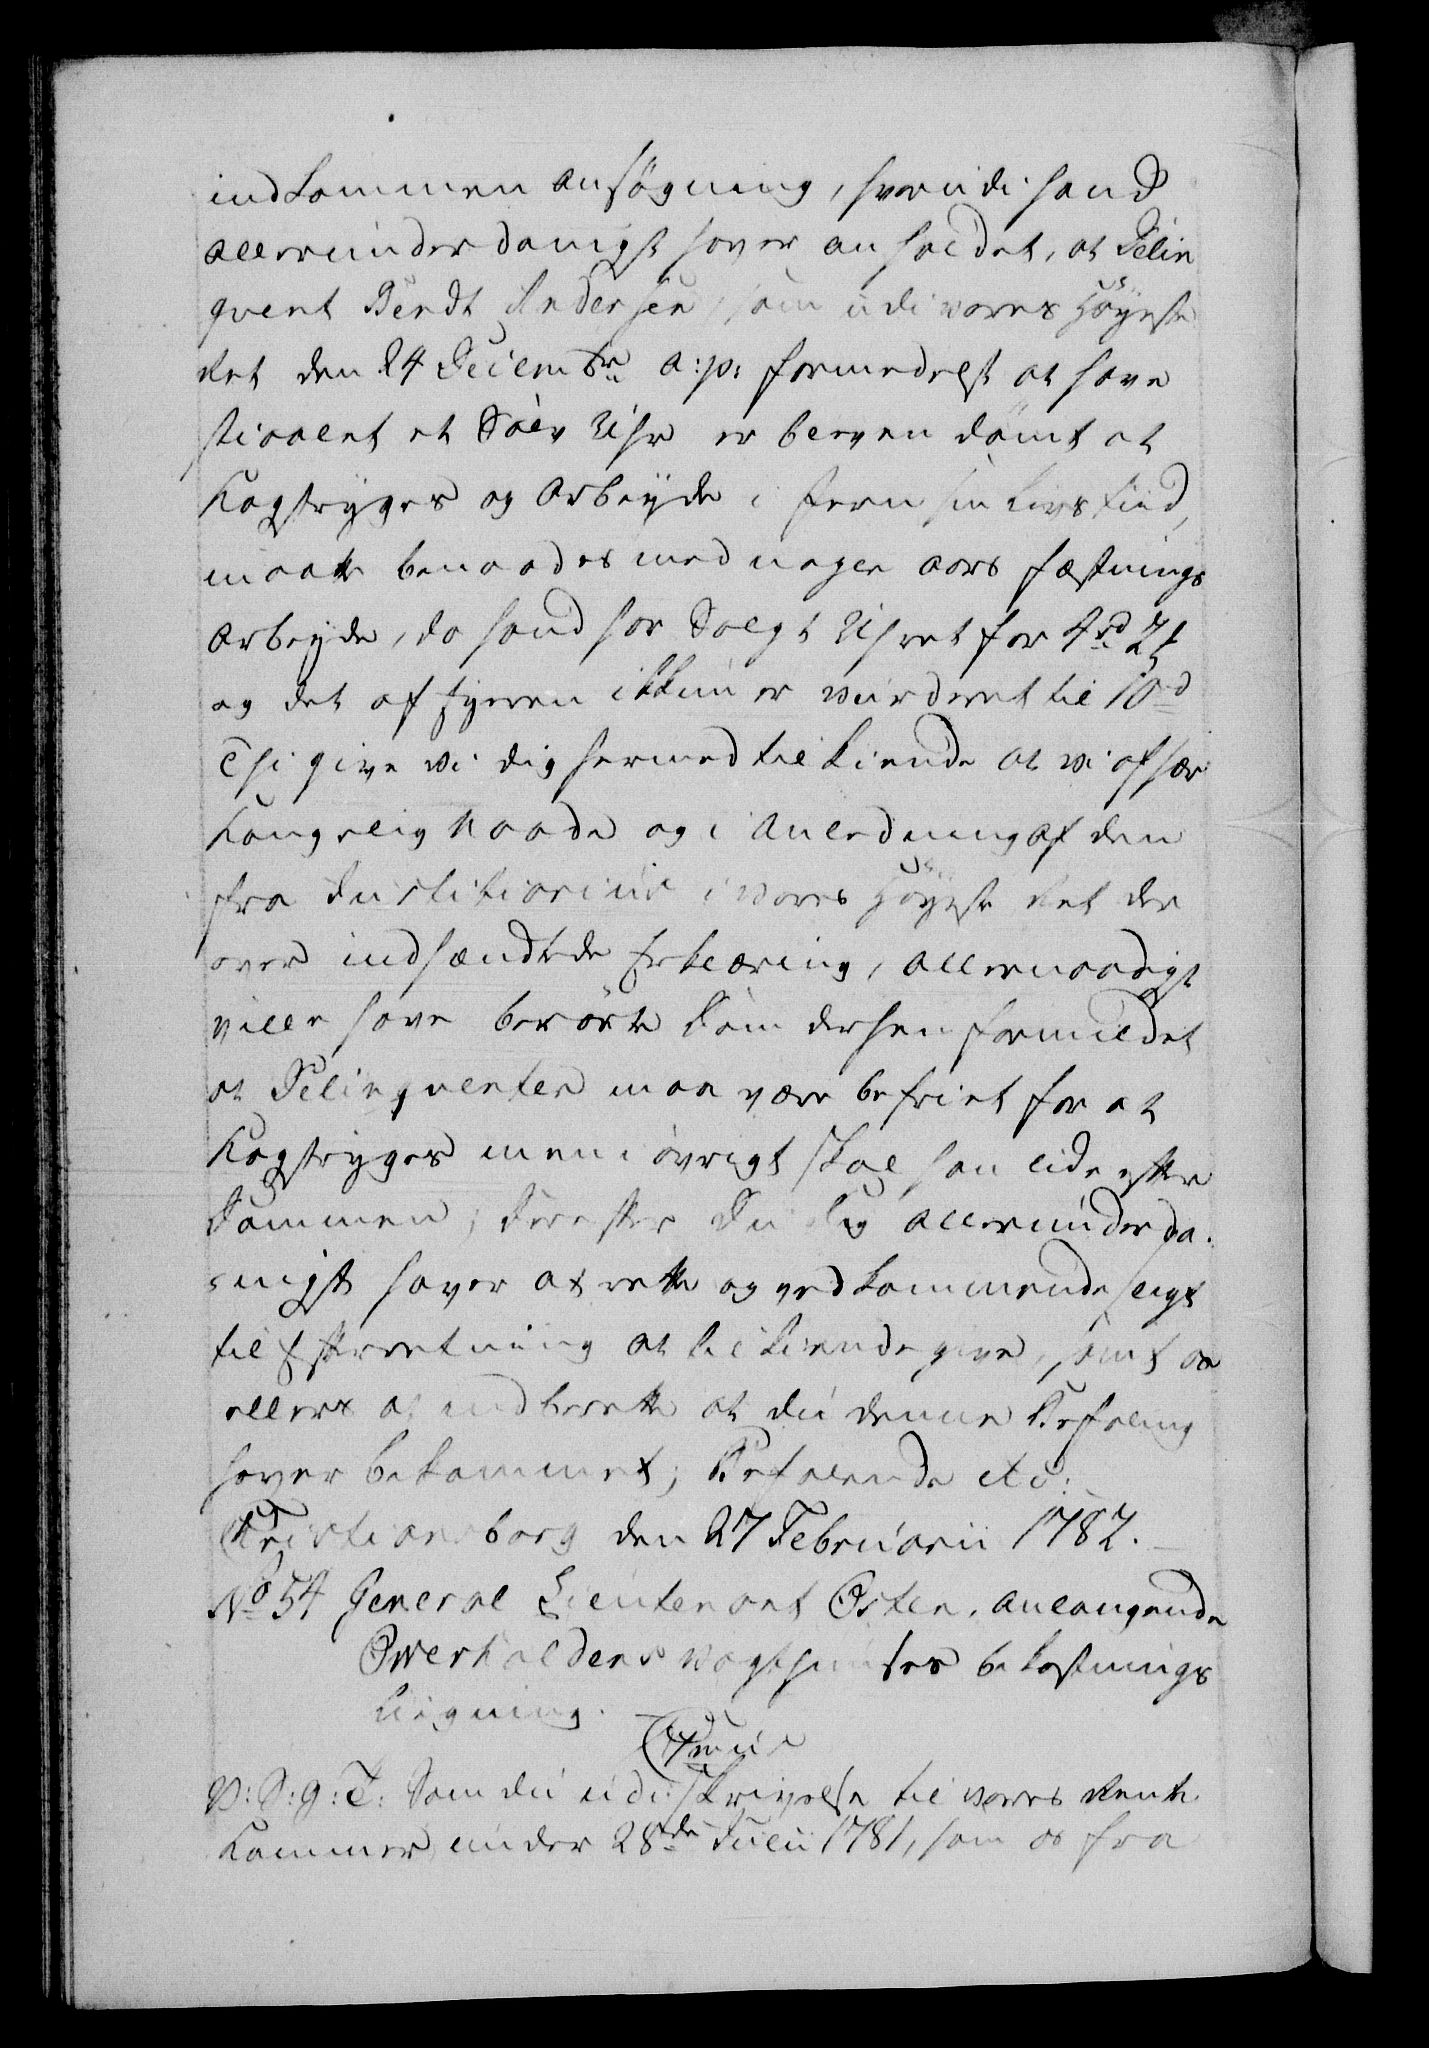 indkommen ansøgning, hvorudi hand
allerunderdanigst haver anholdet, at Delin
qvent Berdt Andersen, som udi vores Høyeste
Ret den 24 Decembr. a: p: formedelst at have
stiaalet et Sølv Uhr er bleven dømt at
Kagstryges og Arbeyde i Jern sin Livs tiid,
maatte benaades med nogen aars Fæstnings
Arbeyde, da hand har Solgt Uhret for 4 rd 2 ß
og det af Eyeren ikkun er vurderet til 10 rd
Thi give vi dig hermed tilkiende at vi af sær
Kongelig Naade og i Anledning af den
fra Justitiarius i vores Høyeste Ret der
over indsændte Erklæring, allernaadigst
ville have berørte Dom derhen formildet
at Delinqventen maa være befriet for at
Kagstryges men i øvrigt skal han lide efter
Dommen, Derefter Du dig allerunderda-
nigst haver at rette og vedkommende sligt
til Efterretning at tilkiende give, samt os
ellers at indberette at du denne Befaling
haver bekommet; Befalende etc:
Christiansborg den 27 Februarii 1782.
No 54 General Lieutenant Osten, anlangende
Overhaldens vagthuuses bekostnings
Ligning.
C 7mus
V: S: g: T: Som du udi skrivelse til vores Rente
Kammer under 28de Julii 1781, som os fra